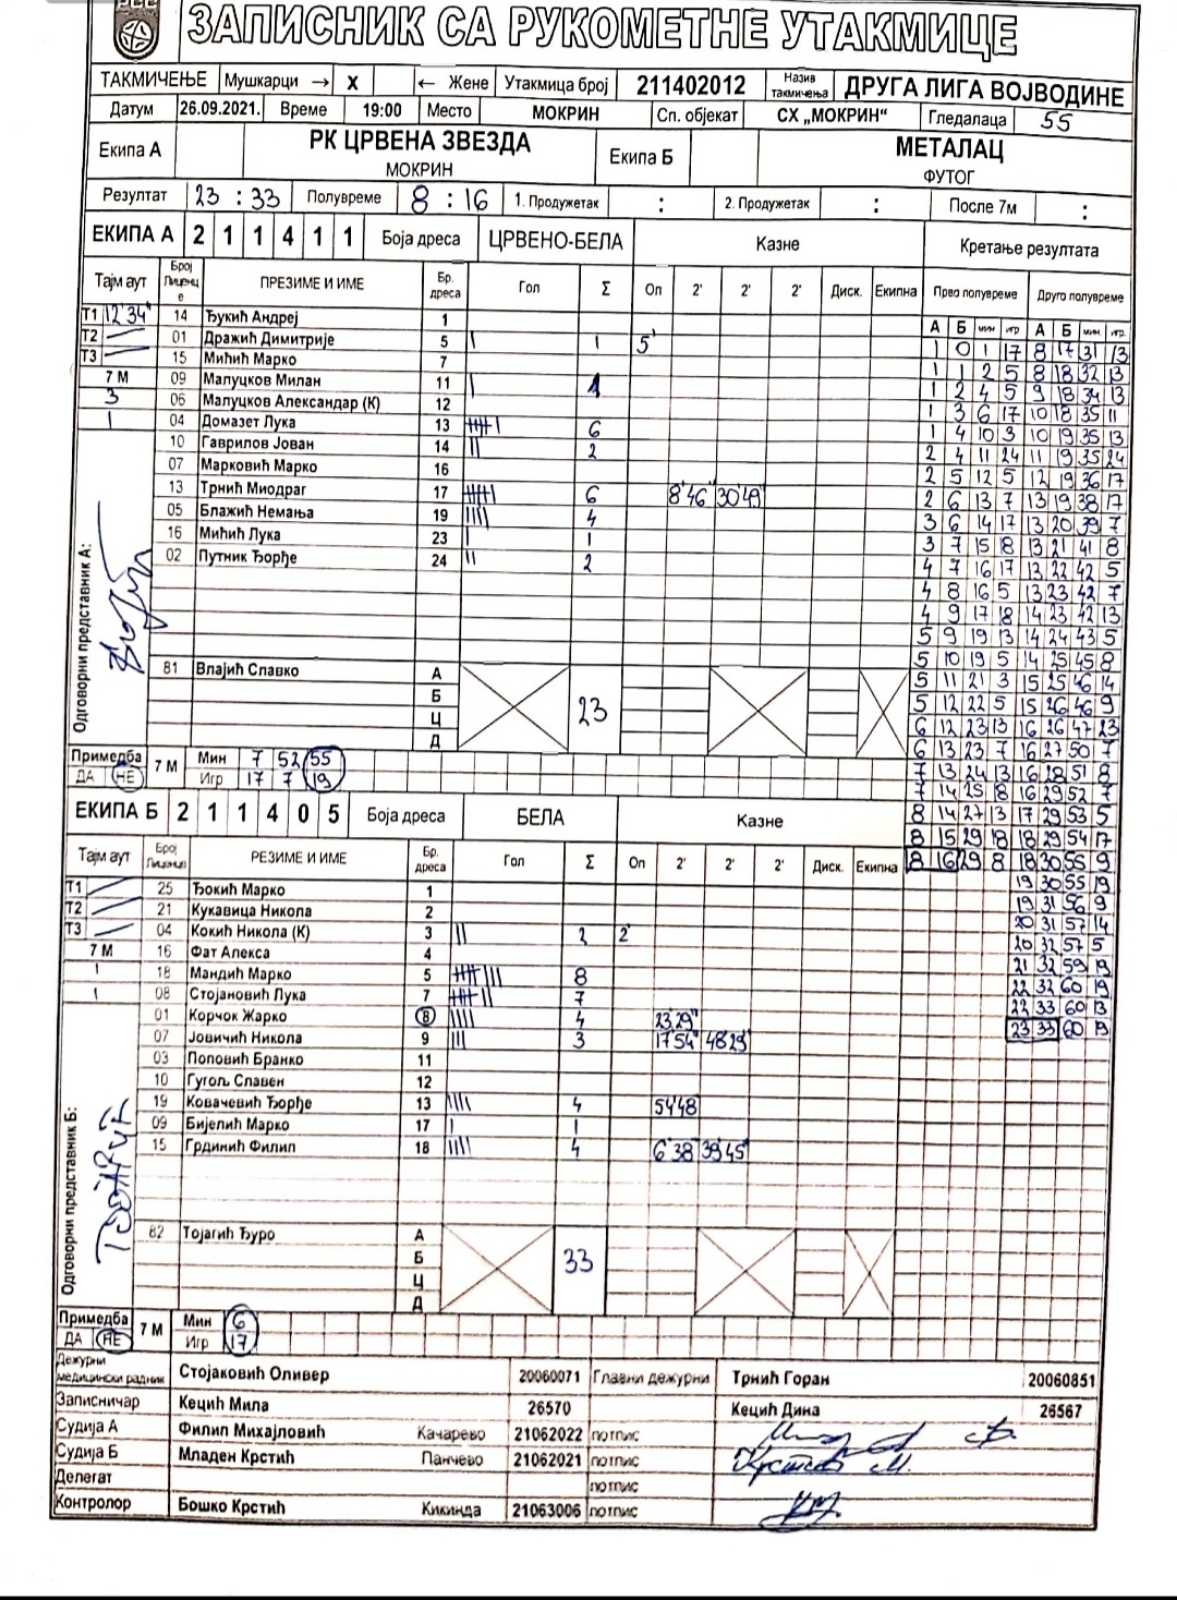 РСС
ЗАПИСНИК СА РУКОМЕТНЕ УТАКМИЦЕ
ТАКМИЧЕЊЕ Мушкарци → X ← Жене Утакмица број 211402012 Назив такмичења ДРУГА ЛИГА ВОЈВОДИНЕ
Датум 26.09.2021. Време 19:00 Место МОКРИН Сп. објекат СХ „МОКРИН“ Гледалаца 55
Екипа А РК ЦРВЕНА ЗВЕЗДА МОКРИН Екипа Б МЕТАЛАЦ ФУТОГ
Резултат 23 : 33 Полувреме 8 : 16 1. Продужетак : 2. Продужетак : После 7м :
ЕКИПА А 2 1 1 4 1 1 Боја дреса ЦРВЕНО-БЕЛА Казне Кретање резултата
Тајм аут Број Лиценце ПРЕЗИМЕ И ИМЕ Бр. дреса Гол Σ Оп 2' 2' 2' Диск. Екипна Прво полувреме Друго полувреме
А Б мин игр А Б мин. игр.
Т1 12'34" 14 Ђукић Андреј 1
1 0 1 17 8 17 31 13
Т2 01 Дражић Димитрије 5 | 1 5'
1 1 2 5 8 18 32 13
Т3 15 Мићић Марко 7
1 2 4 5 9 18 34 13
7 М 09 Малуцков Милан 11 | 1
1 3 6 17 10 18 35 11
3 06 Малуцков Александар (К) 12
1 4 10 3 10 19 35 13
1 04 Домазет Лука 13 6
2 4 11 24 11 19 35 24
10 Гаврилов Јован 14 || 2
2 5 12 5 12 19 36 17
07 Марковић Марко 16
2 6 13 7 13 19 38 17
13 Трнић Миодраг 17 6 8'46" 30'49"
3 6 14 17 13 20 39 7
05 Блажић Немања 19 |||| 4
3 7 15 8 13 21 41 8
16 Мићић Лука 23 | 1
4 7 16 17 13 22 42 5
02 Путник Ђорђе 24 || 2
4 8 16 5 13 23 42 7
4 9 17 18 14 23 42 13
5 9 19 13 14 24 43 5
5 10 19 5 14 25 45 8
5 11 21 3 15 25 46 14
5 12 22 5 15 26 46 9
6 12 23 13 16 26 47 23
6 13 23 7 16 27 50 7
7 13 24 13 16 28 51 8
7 14 25 18 16 29 52 7
8 14 27 13 17 29 53 5
8 15 29 18 18 29 54 17
8 16 29 8 18 30 55 9
19 30 55 19
19 31 56 9
20 31 57 14
20 32 57 5
21 32 59 19
22 32 60 19
22 33 60 13
23 33 60 19
Одговорни представник А:
81 Влајић Славко А 23
Б
Ц
Д
Примедба ДА НЕ 7 М Мин 7 52 55
Игр 17 7 19
ЕКИПА Б 2 1 1 4 0 5 Боја дреса БЕЛА Казне
Тајм аут Број Лиценце РЕЗИМЕ И ИМЕ Бр. дреса Гол Σ Оп 2' 2' 2' Диск. Екипна
Т1 25 Ђокић Марко 1
Т2 21 Кукавица Никола 2
Т3 04 Кокић Никола (К) 3 || 2 2'
7 М 16 Фат Алекса 4
1 18 Мандић Марко 5 8
1 08 Стојановић Лука 7 7
01 Корчок Жарко 8 |||| 4 23'29"
07 Јовичић Никола 9 ||| 3 17'54" 48'29"
03 Поповић Бранко 11
10 Гугољ Славен 12
19 Ковачевић Ђорђе 13 |||| 4 54'48
09 Бијелић Марко 17 | 1
15 Грдинић Филип 18 |||| 4 6'38 39'45"
Одговорни представник Б:
82 Тојагић Ђуро А 33
Б
Ц
Д
Примедба ДА НЕ 7 М Мин 6
Игр 17
Дежурни медицински радник Стојаковић Оливер 20060071 Главни дежурни Трнић Горан 20060851
Записничар Кецић Мила 26570 Кецић Дина 26567
Судија А Филип Михајловић Качарево 21062022 потпис
Судија Б Младен Крстић Панчево 21062021 потпис
Делегат потпис
Контролор Бошко Крстић Кикинда 21063006 потпис